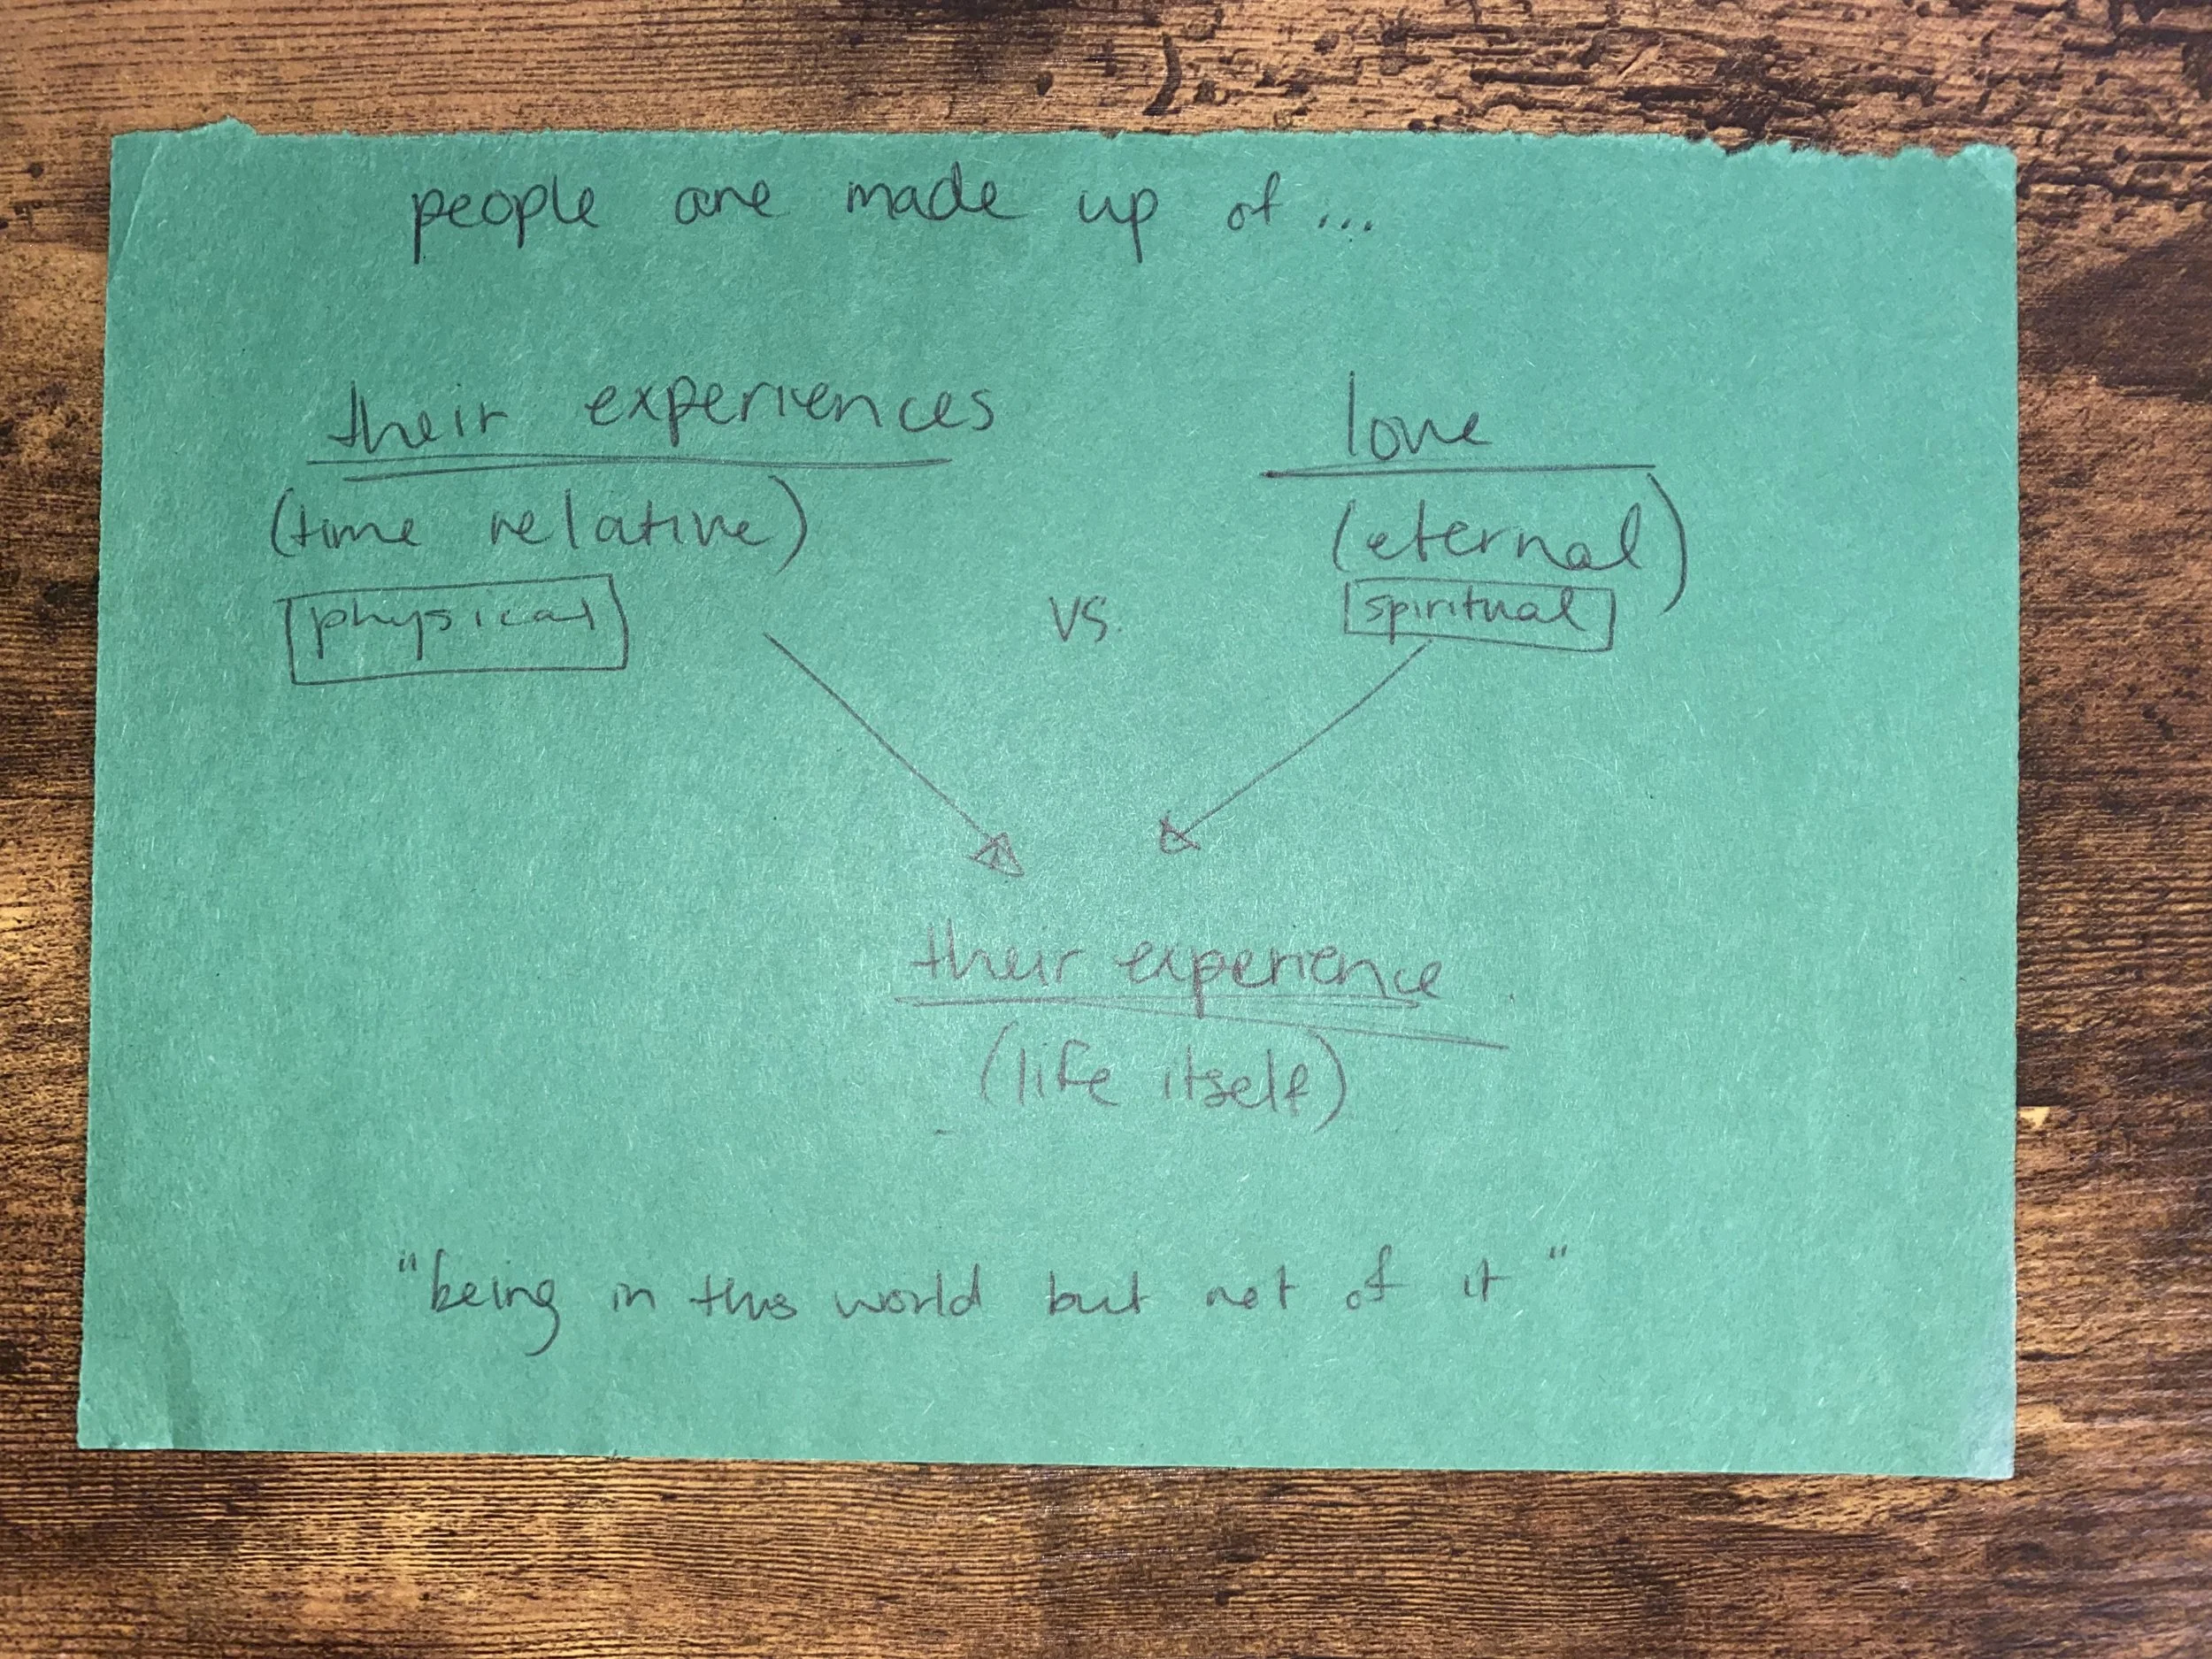 people are made up of...
their experiences
love
(time relative)
(eternal)
physical
vs.
spiritual
their experience
(life itself)
"being in this world but not of it"